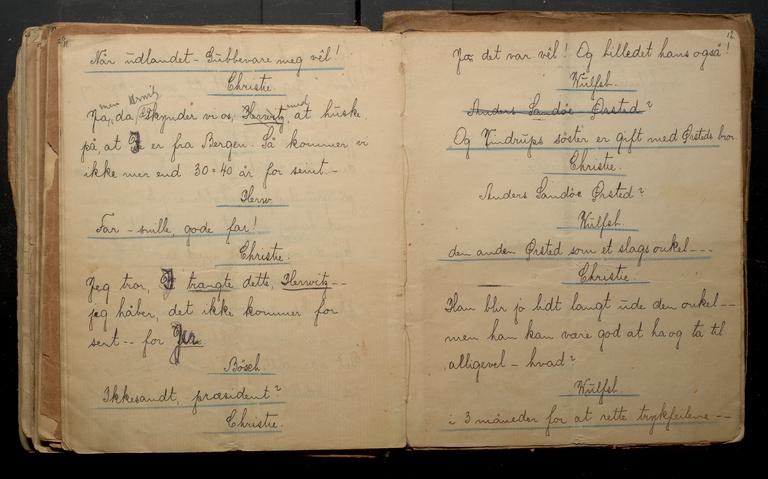 Når udlandet - Gubbevare meg vêl!
Christie.
men Herwitz
Ja, da skynder vi os, Herwitz, med at huske
på, at I er fra Bergen. Så kommer vi
ikke mer end 30-40 år for seint.-
Herw.
Far - snille, gode far!
Christie.
Jeg tror, I trangte dette, Herwitz--
jeg håber, det ikke kommer for
sent -- for Jer.
Bösch.
Ikkesandt, præsident?
Christie.
12
Jo, det var vêl! Og billedet hans også!
Wulfsb.
Anders Sandöe Ørsted?
Og Vindrups söster er gift med Ørsteds bror
Christie.
Anders Sandöe Ørsted?
Wulfsb.
den anden Ørsted som et slags onkel---
Christie.
Han blir jo lidt langt ude den onkel--
men han kan være god at ha og ta til
alligevel - hvad?
Wulfsb.
i 3 måneder for at rette trykfeilene --